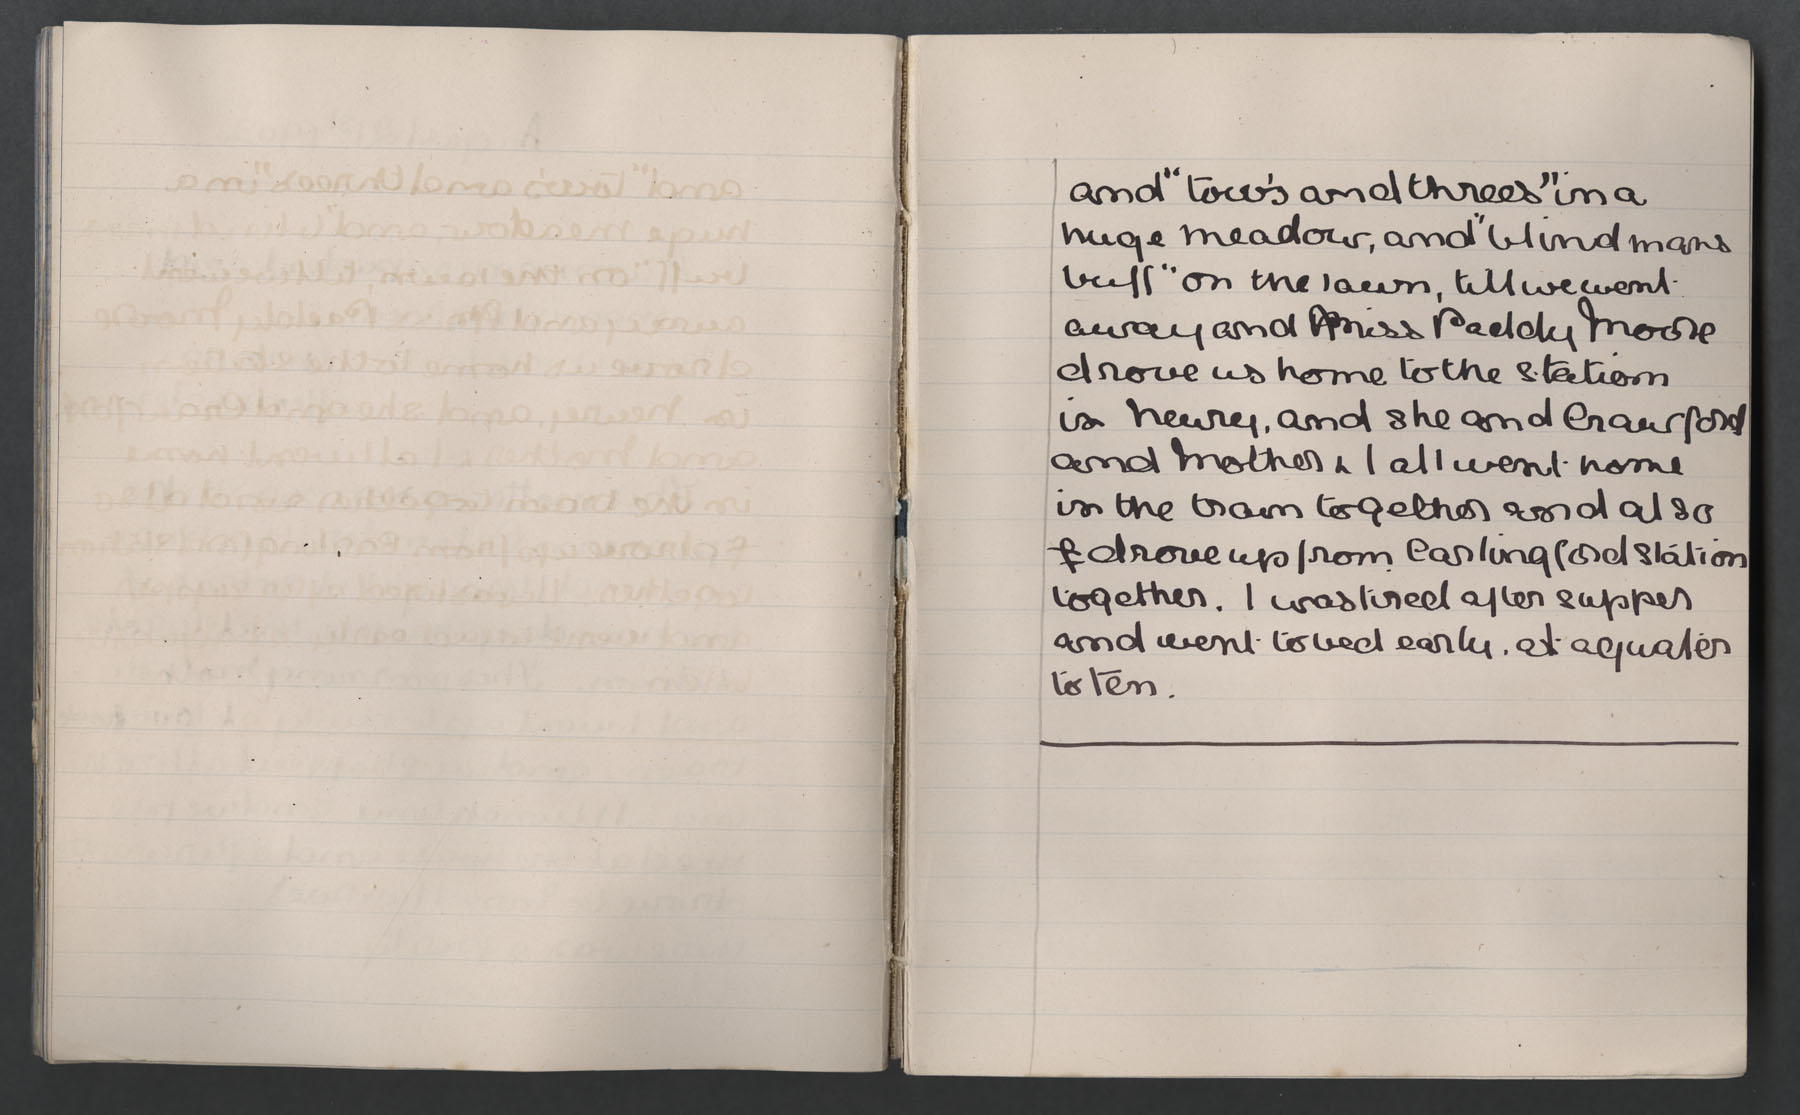 and "tow's and threes" in a
huge meadow, and "blind mans
buff" on the lawn, till we went
away and Miss Paddy Moore
drove us home to the station
in Newry, and she and Crawford
and Mother & I all went home
in the train together and also
& drove up from Carlingford Station
together. I was tired after supper
and went to bed early, at a quater
to ten.